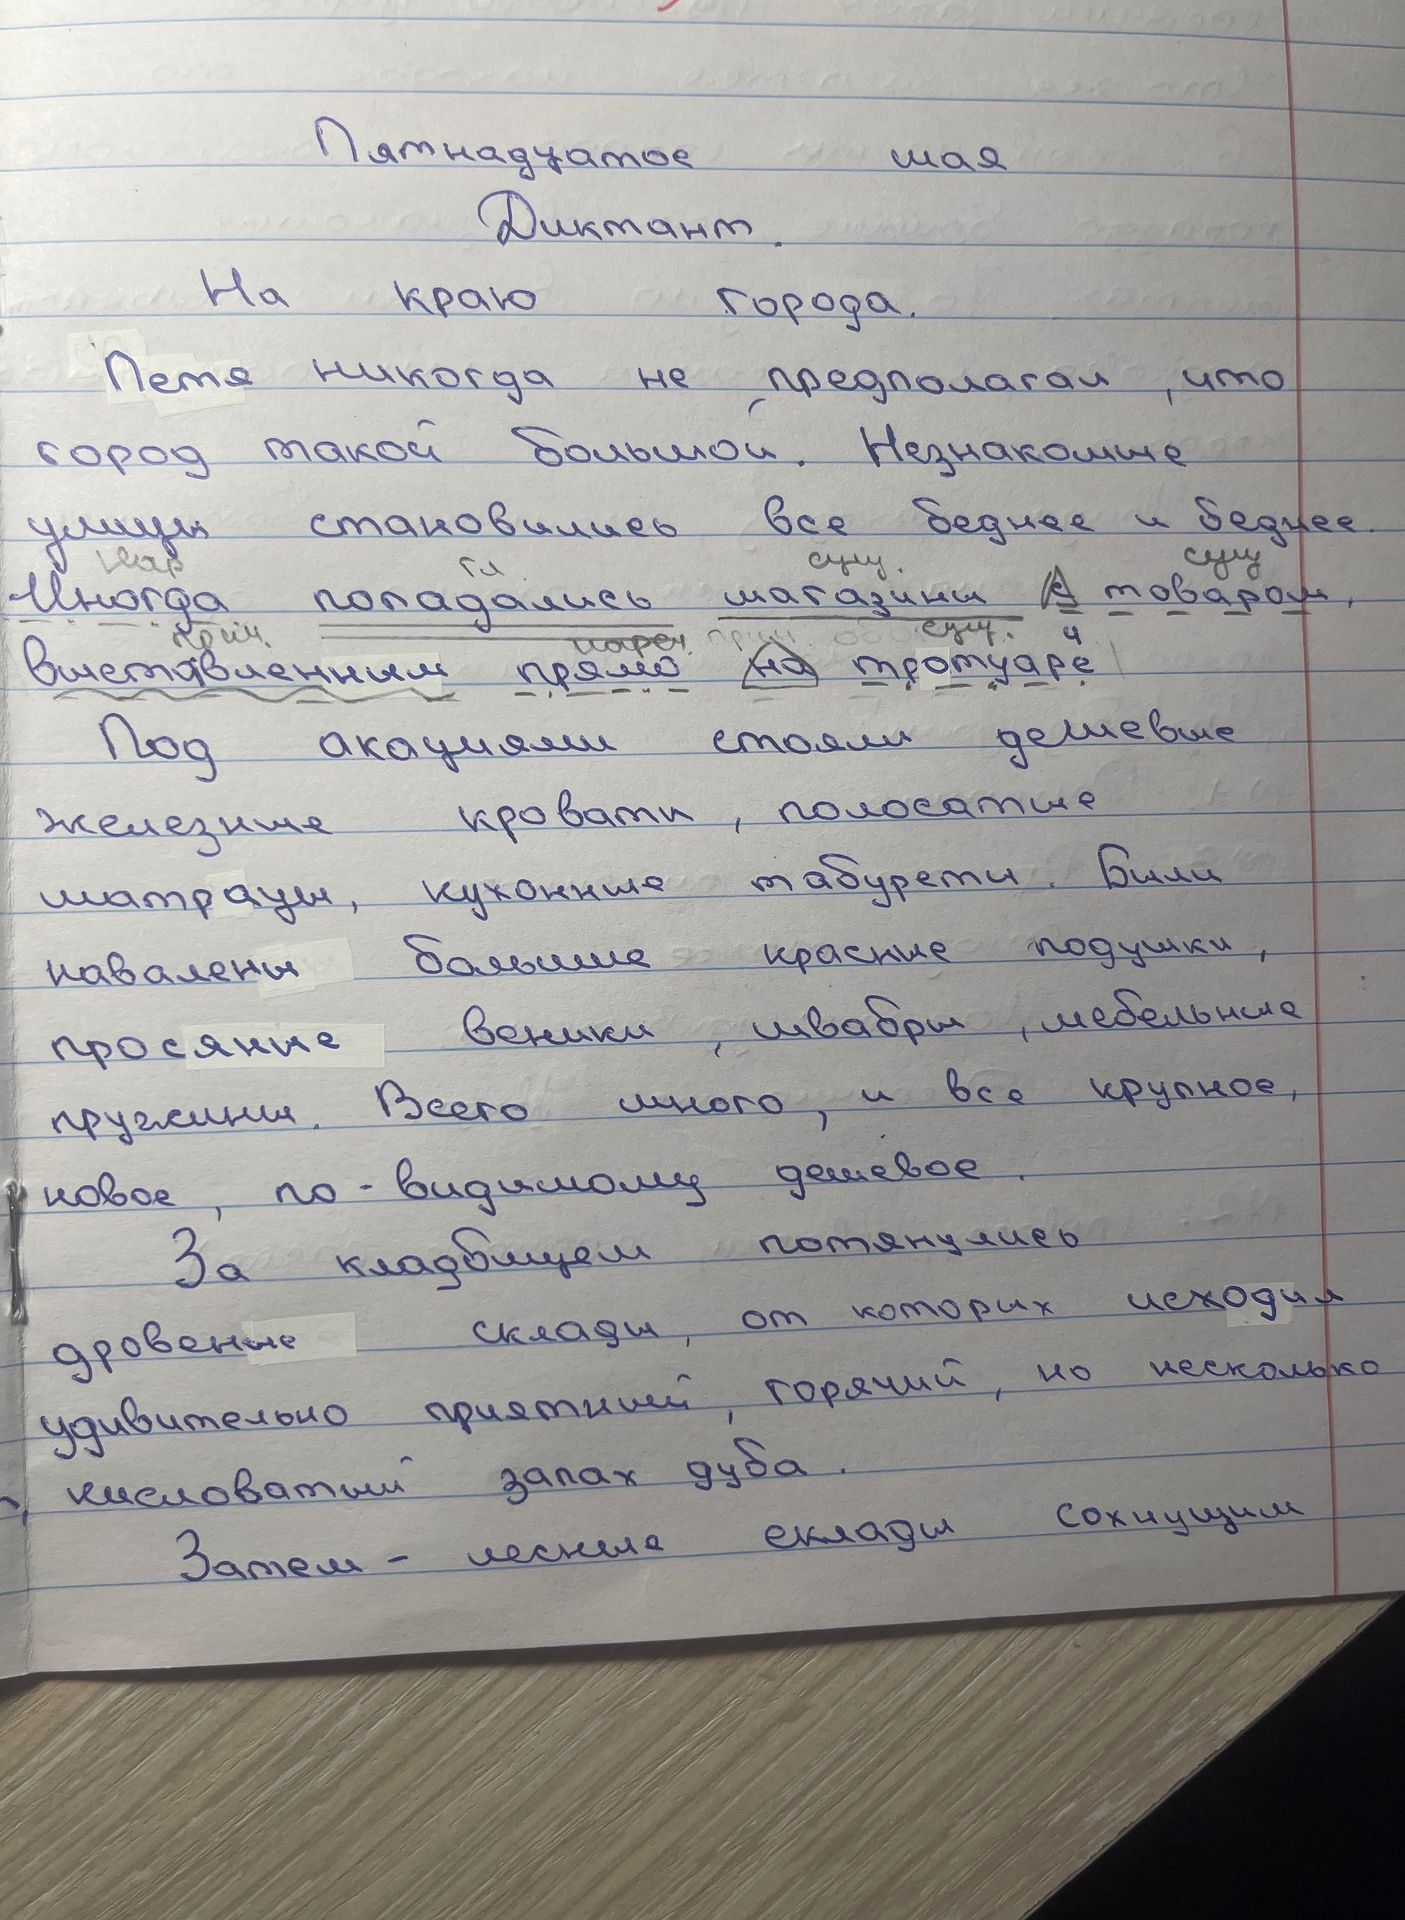 Пятнадцатое мая
Диктант.
На краю города.
Петя никогда не предполагал, что
город такой большой. Незнакомые
улицы становились все беднее и беднее.
нар гл сущ. сущ
Иногда попадались магазины с товаром,
прич. нареч. сущ. 4
выставленным прямо на тротуаре
Под акациями стояли дешевые
железные кровати, полосатые
матрацы, кухонные табуреты. Были
навалены большие красные подушки,
просяные веники, швабры, мебельные
пружины. Всего много, и все крупное,
новое, по-видимому дешевое.
За кладбищем потянулись
дровеные склады, от которых исходил
удивительно приятный, горячий, но несколько
кисловатый запах дуба.
Затем – лесные склады сохнущим